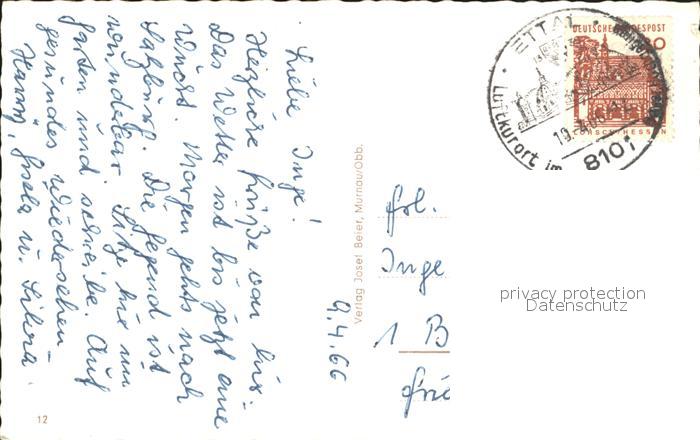 Liebe Inge!
Herzliche Grüße von hier.
Das Wetter ist bis jetzt eine
Wucht. Morgen gehts nach
Salzburg. Die Gegend ist
wunderbar. Sitze hier im
Garten und schreibe. Auf
gesundes Wiedersehen
Hanns, Gisela u. Silvia.
9.4.66
Verlag Josef Beier, Murnau/Obb.
12
Frl.
Inge
1 B
ETTAL
Luftkurort im
8101
DEUTSCHE BUNDESPOST
LORSCH/HESSEN
privacy protection
Datenschutz